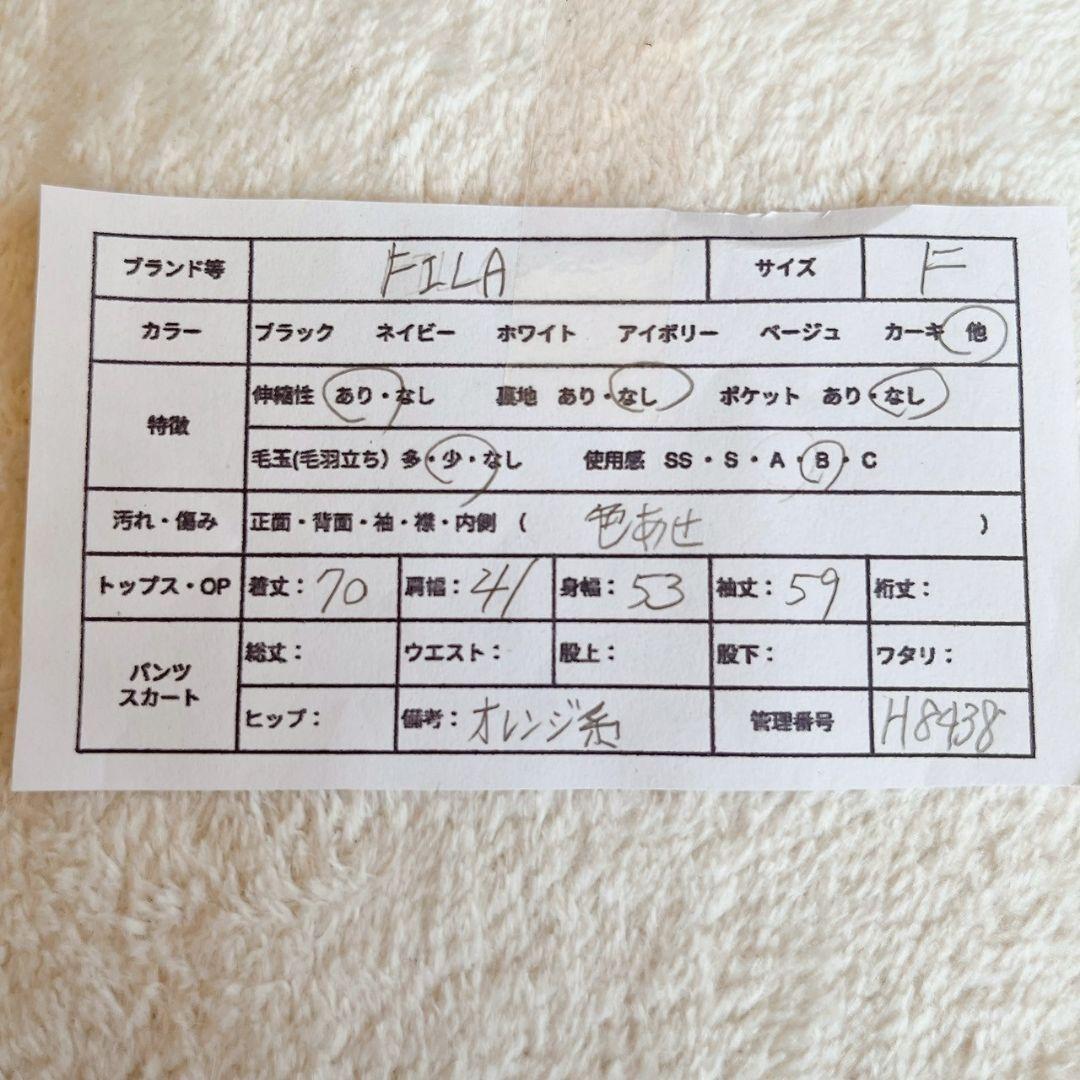 ブランド等 FILA サイズ F
カラー ブラック ネイビー ホワイト アイボリー ベージュ カーキ 他
特徴 伸縮性 あり・なし 裏地 あり・なし ポケット あり・なし
毛玉(毛羽立ち) 多・少・なし 使用感 SS・S・A・B・C
汚れ・傷み 正面・背面・袖・襟・内側 ( 色あせ )
トップス・OP 着丈: 70 肩幅: 41 身幅: 53 袖丈: 59 裄丈:
パンツ スカート 総丈: ウエスト: 股上: 股下: ワタリ:
ヒップ: 備考: オレンジ系 管理番号 H8438